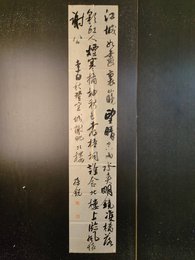 江城如畫裏山望晴空兩水夾明鏡雙橋落
彩虹人煙寒橘柚秋色老梧桐誰念北樓上臨風懷
謝公
李白秋登宣城謝朓北樓